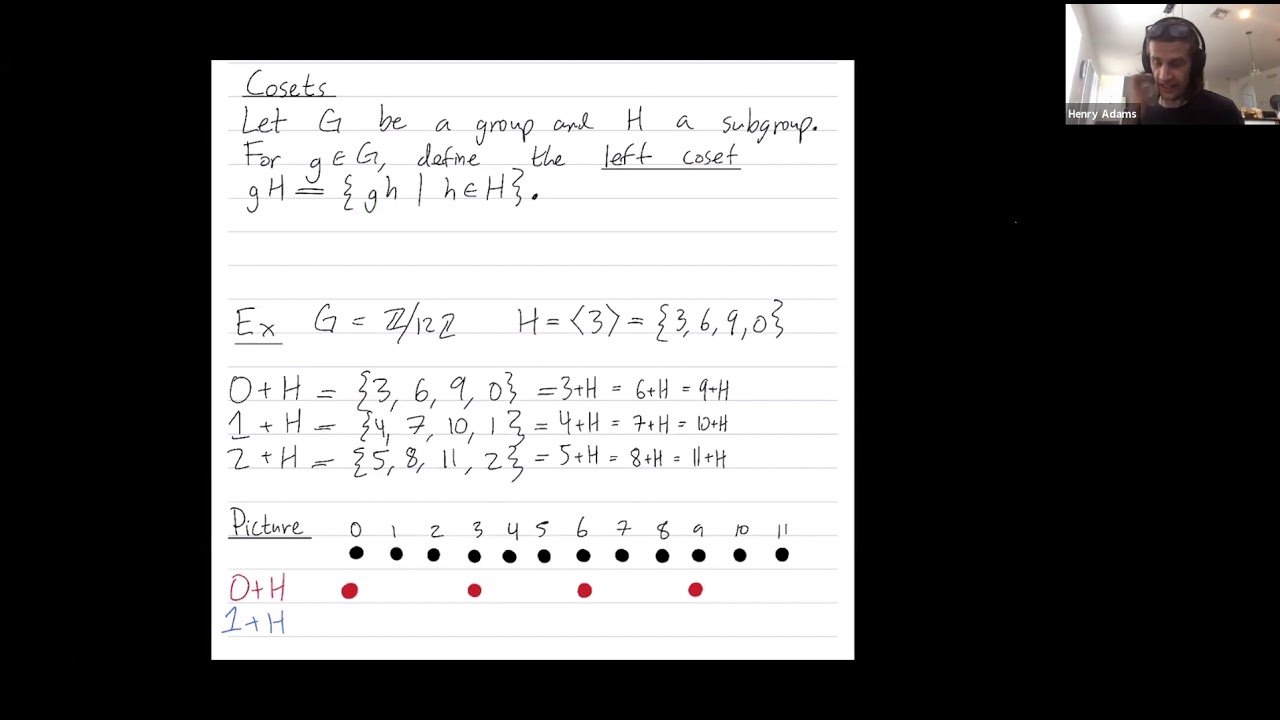 Cosets
Let G be a group and H a subgroup.
For g ∈ G, define the left coset
gH = {gh | h ∈ H}.
Ex G = ℤ/12ℤ H = ⟨3⟩ = {3, 6, 9, 0}
0+H = {3, 6, 9, 0} = 3+H = 6+H = 9+H
1+H = {4, 7, 10, 1} = 4+H = 7+H = 10+H
2+H = {5, 8, 11, 2} = 5+H = 8+H = 11+H
Picture 0 1 2 3 4 5 6 7 8 9 10 11
0+H
1+H
Henry Adams